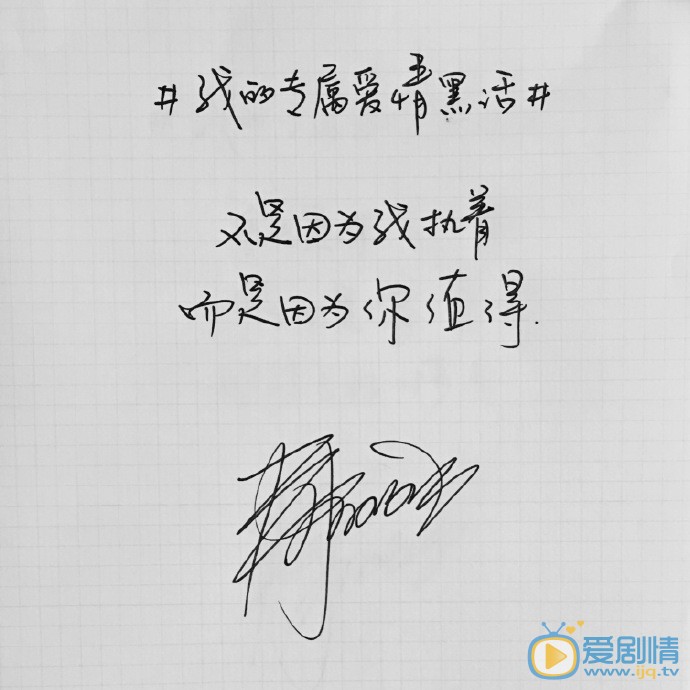 #我的专属爱情黑话#
不是因为我执着
而是因为你值得.
爱剧情
www.ijq.tv